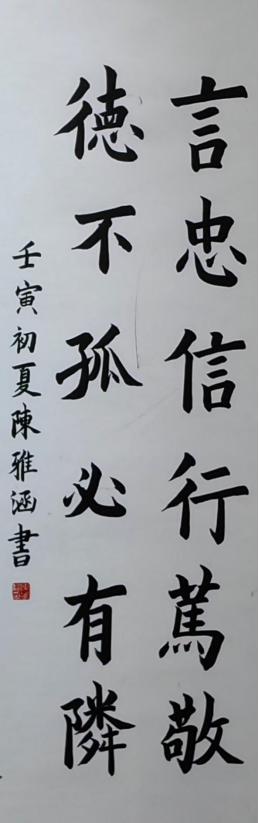 言忠信行篤敬
徳不孤必有隣
壬寅初夏陳雅涵書